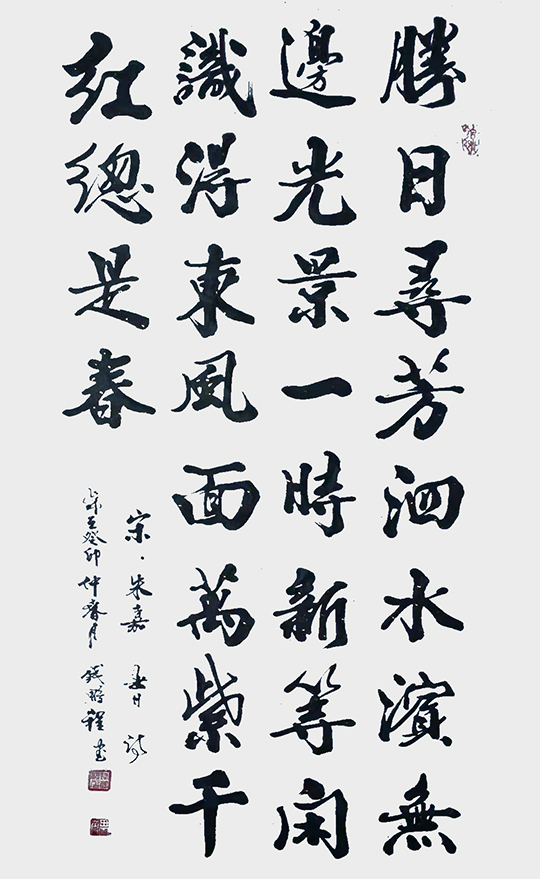 勝日尋芳泗水濱無
邊光景一時新等闲
識得東風面萬紫千
紅總是春
宋·朱嘉 春日 詩
癸卯仲春月 錢鵬程書